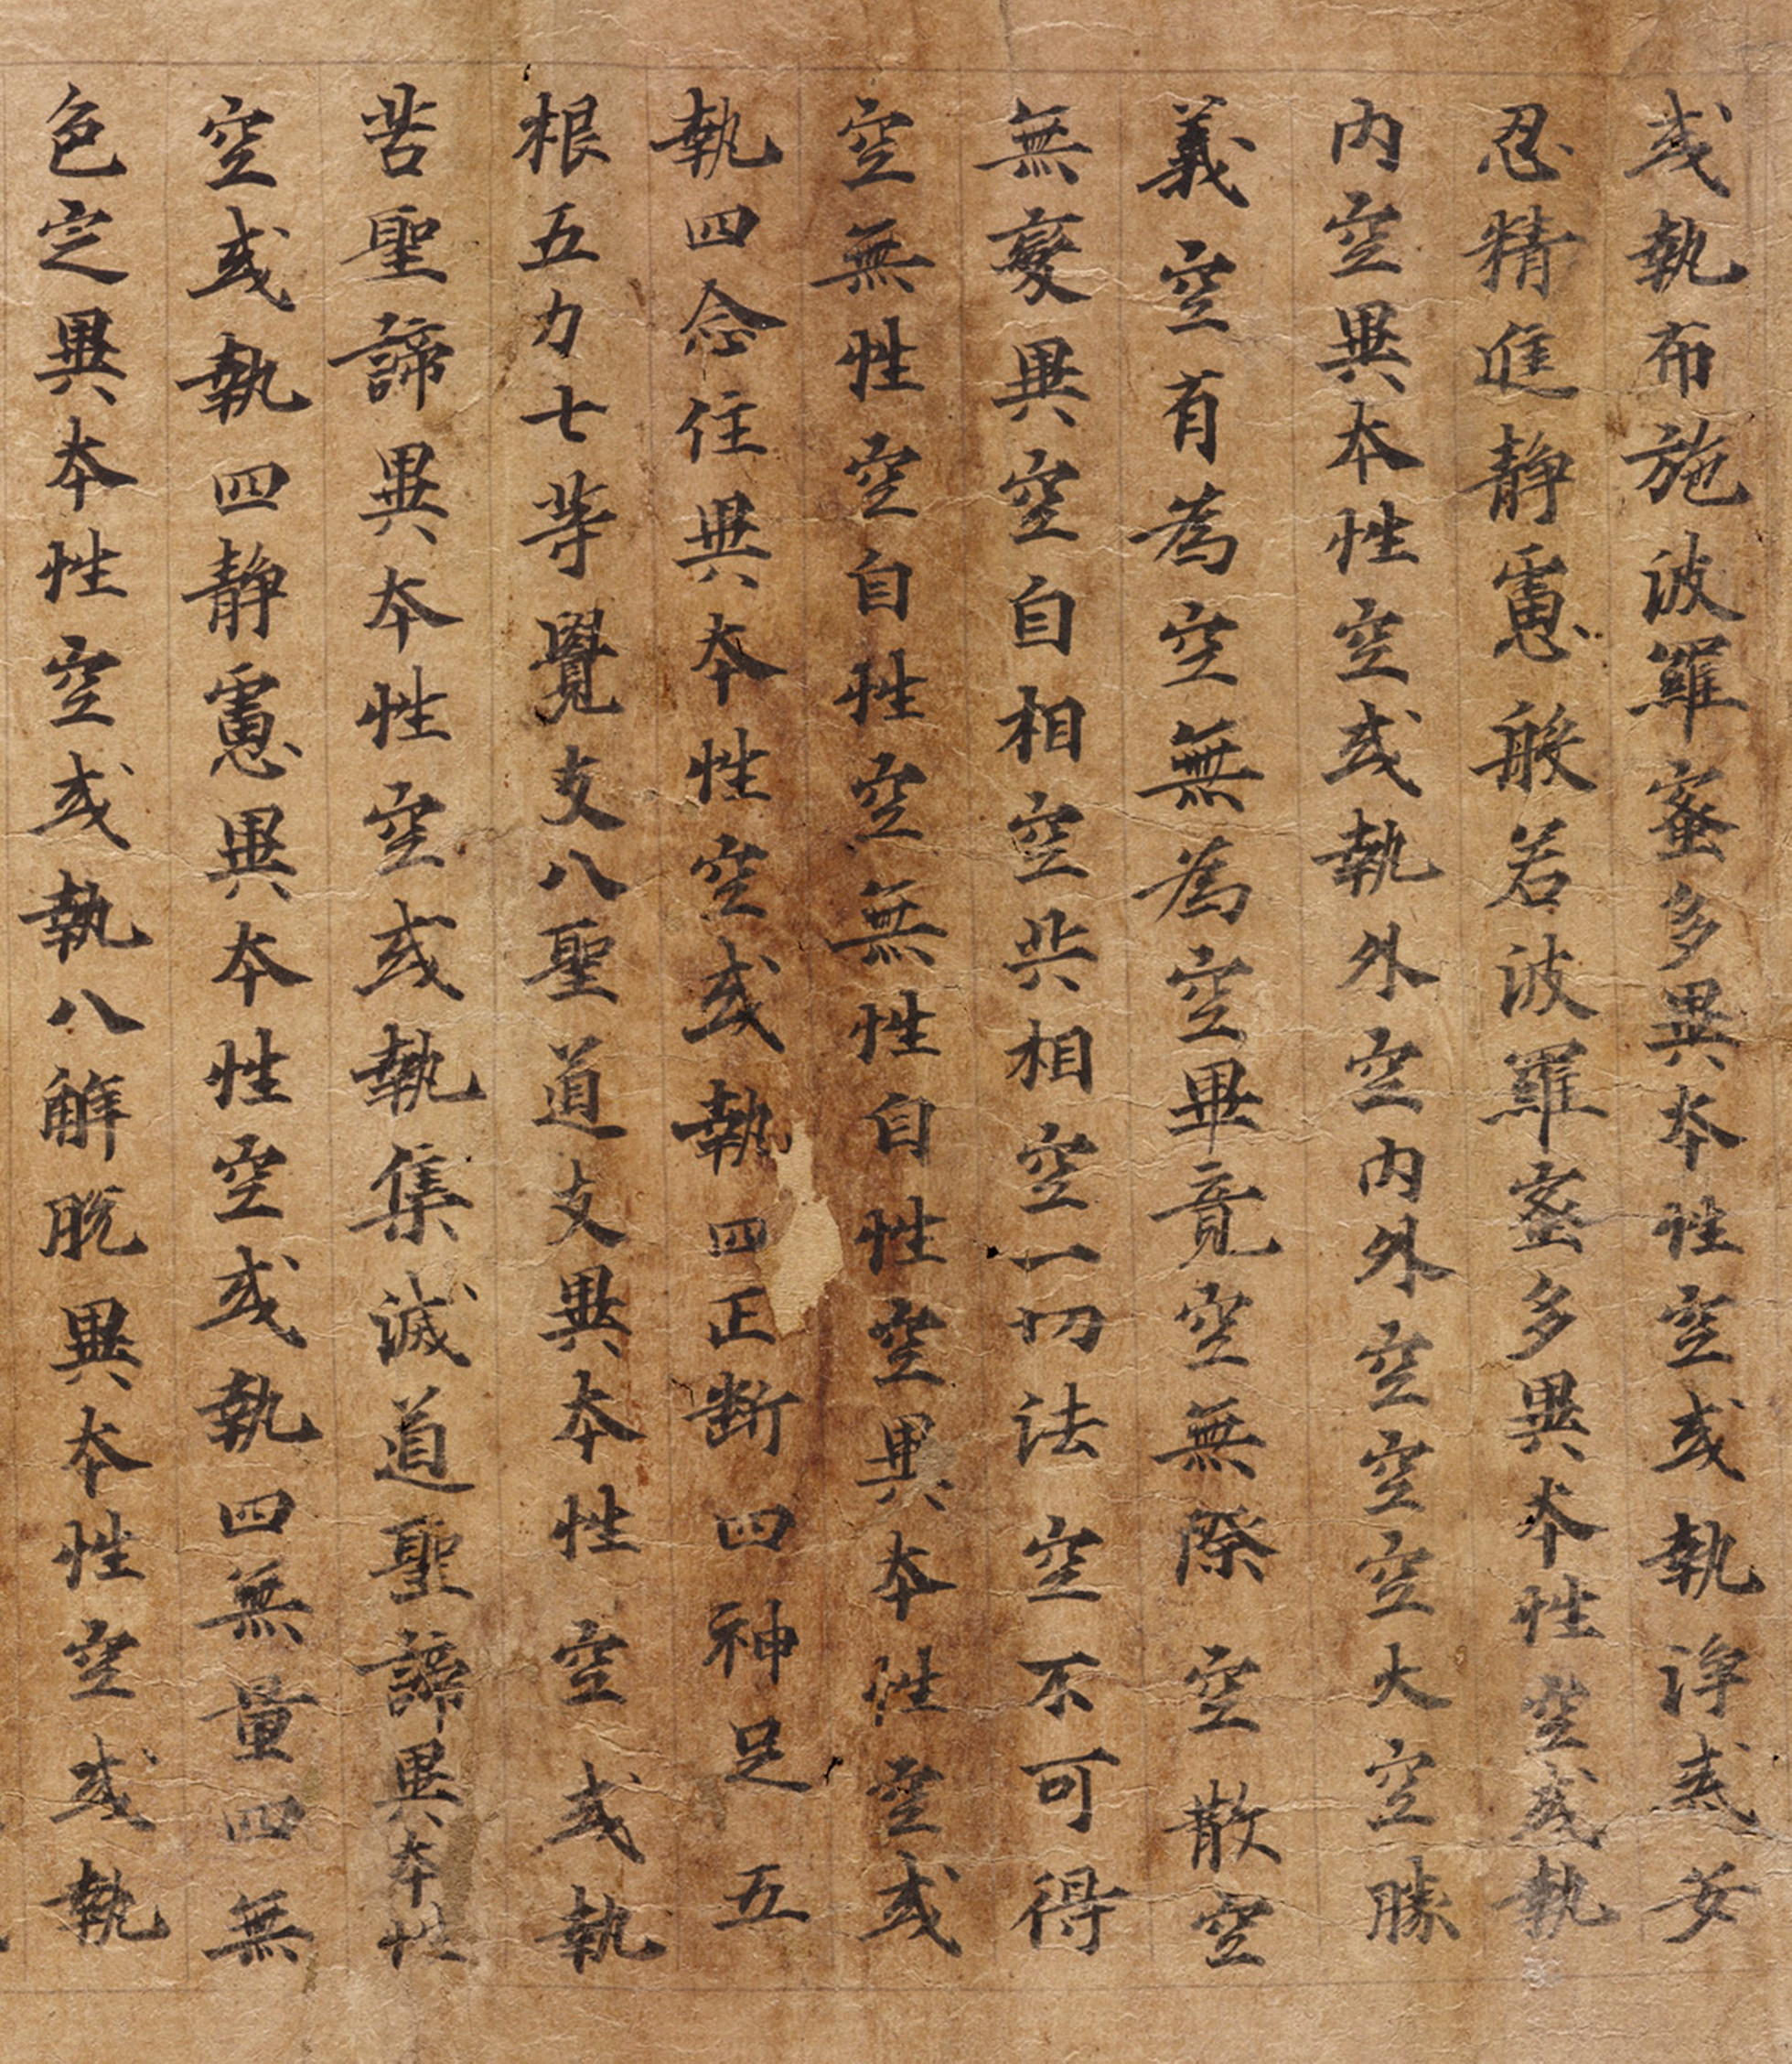 或執布施波羅蜜多異本性空或執淨或安
忍精進静慮般若波羅蜜多異本性空或執
内空異本性空或執外空内外空空空大空勝
義空有為空無為空畢竟空無際空散空
無變異空自相空共相空一切法空不可得
空無性空自性空無性自性空異本性空或
執四念住異本性空或執四正断四神足五
根五力七等覺支八聖道支異本性空或執
苦聖諦異本性空或執集滅道聖諦異本性
空或執四静慮異本性空或執四無量四無
色定異本性空或執八解脫異本性空或執